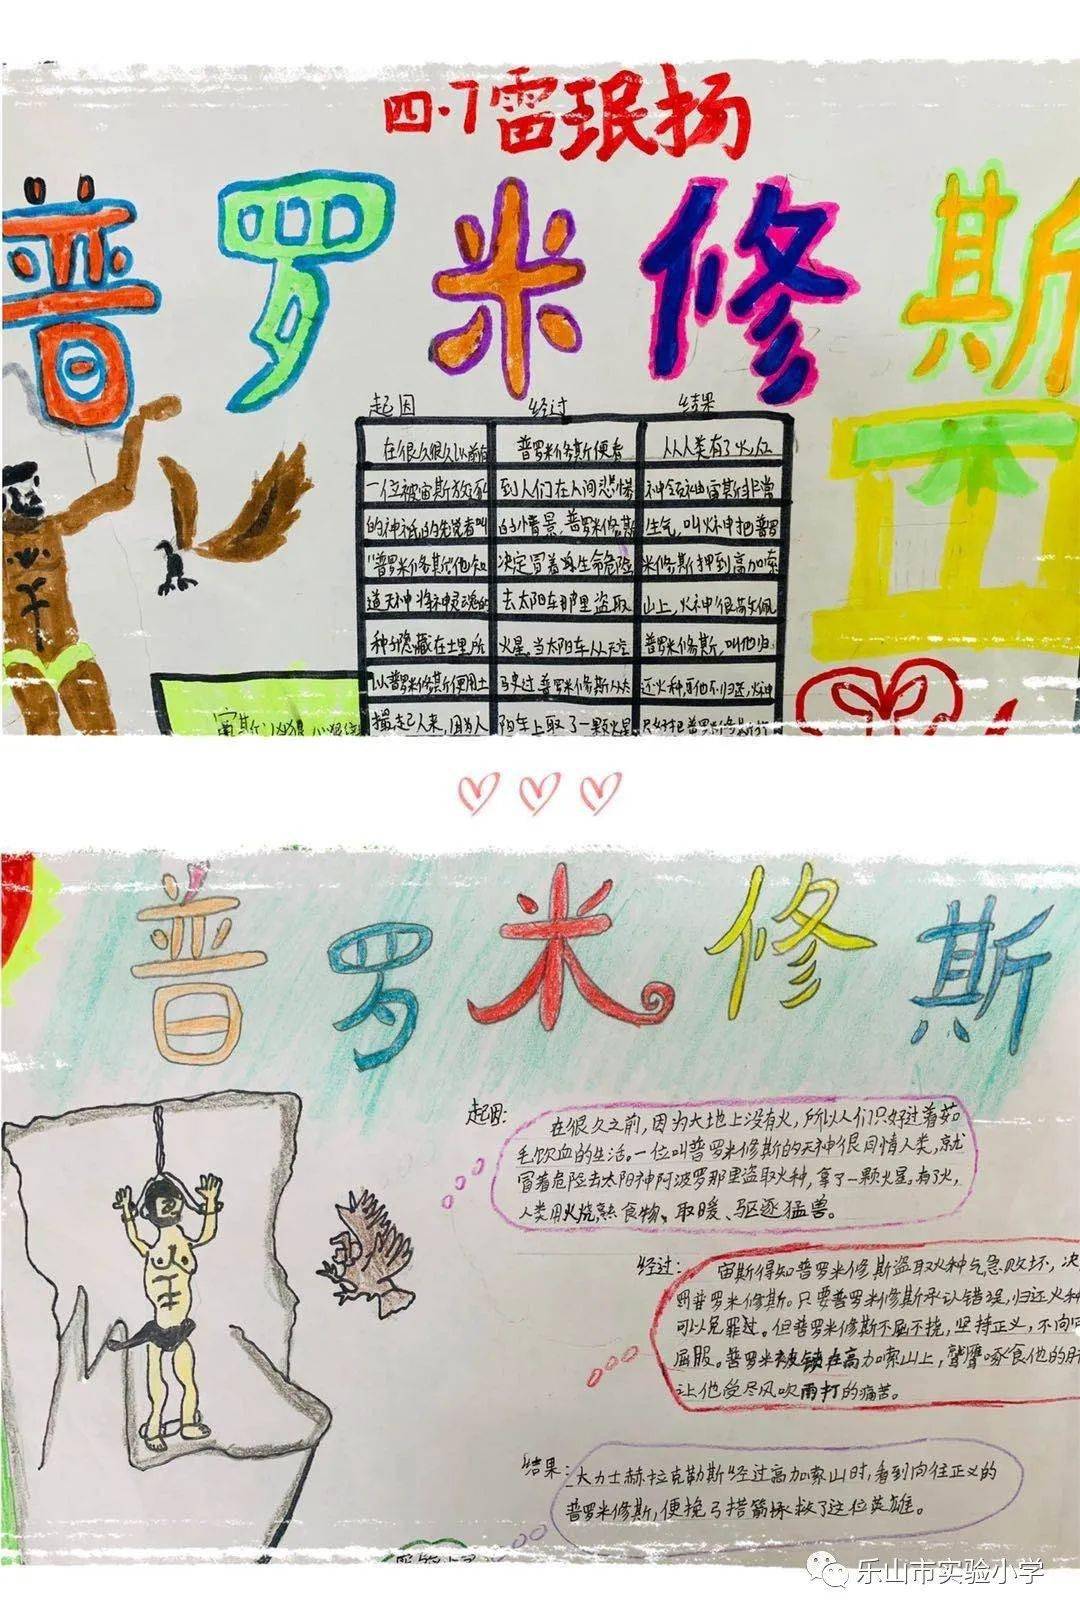 四.7雷珉扬
普罗米修斯
起因 经过 结果
在很久很久以前有 普罗米修斯便看 从人类有了火,众
一位被宙斯放逐 到人们在人间悲惨 神领袖宙斯非常
的神祗的先觉者叫 的情景,普罗米修斯 生气,叫火神把普罗
"普罗米修斯"他知 决定冒着生命危险 米修斯押到高加索
道天神将神灵魂的 去太阳车那里盗取 山上,火神很敬佩
种子隐藏在土里所 火星,当太阳车从天空 普罗米修斯,叫他归
以普罗米修斯便用土 马史过普罗米修斯从太 还火种可他不归还,火神
撮起人来,因为人 阳车上取了一颗火星 只好把普罗米修斯
宙斯
普罗米修斯
起因:
在很久之前,因为大地上没有火,所以人们只好过着茹
毛饮血的生活。一位叫普罗米修斯的天神很同情人类,就
冒着危险去太阳神阿波罗那里盗取火种,拿了一颗火星,有了火,
人类用火烧熟食物、取暖、驱逐猛兽。
经过:
宙斯得知普罗米修斯盗取火种气急败坏,决
罚普罗米修斯。只要普罗米修斯承认错误,归还火种
可以免罪过。但普罗米修斯不屈不挠,坚持正义,不向
屈服。普罗米被锁在高加索山上,鹫鹰啄食他的肝
让他受尽风吹雨打的痛苦。
结果:
大力士赫拉克勒斯经过高加索山时,看到向往正义的
普罗米修斯,便挽弓搭箭拯救了这位英雄。
乐山市实验小学